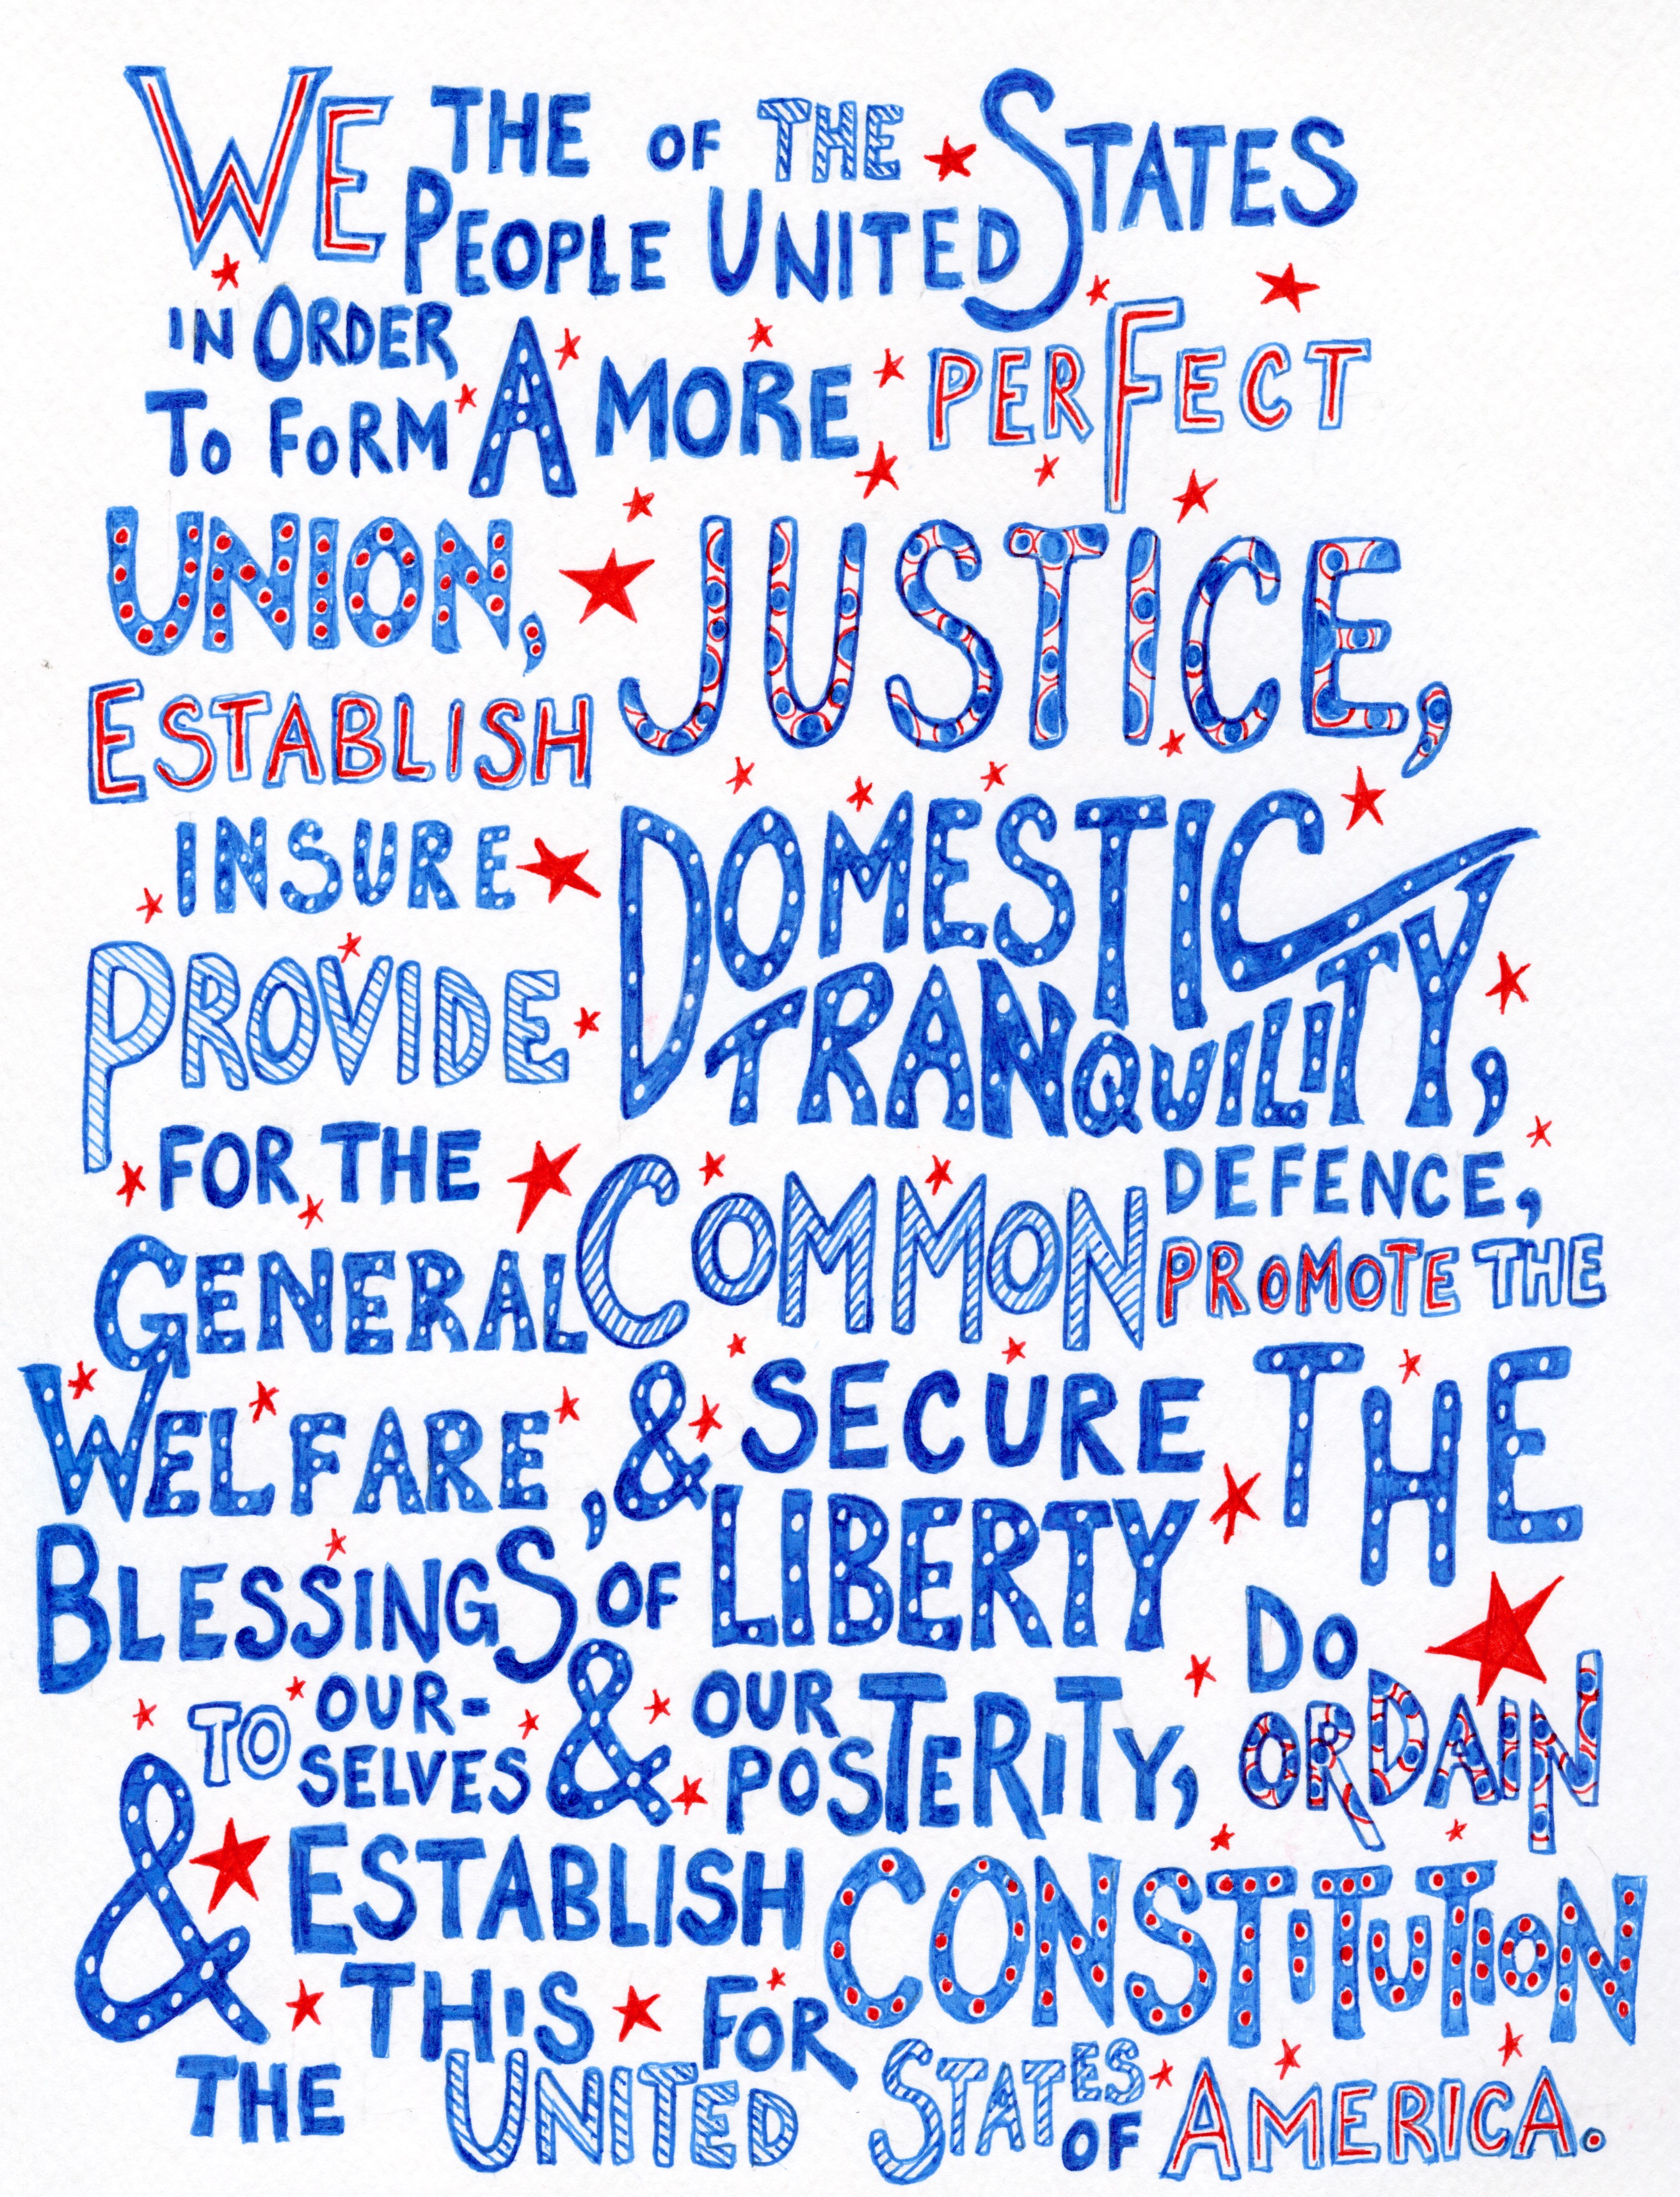 WE THE PEOPLE OF THE UNITED STATES
IN ORDER
TO FORM A MORE PERFECT
UNION,
ESTABLISH JUSTICE,
INSURE DOMESTIC
TRANQUILITY,
PROVIDE
FOR THE COMMON DEFENCE,
PROMOTE THE
GENERAL
WELFARE, & SECURE THE
BLESSINGS OF LIBERTY
TO OUR-
SELVES & OUR
POSTERITY, DO
ORDAIN
& ESTABLISH
THIS CONSTITUTION
FOR
THE UNITED STATES
OF AMERICA.